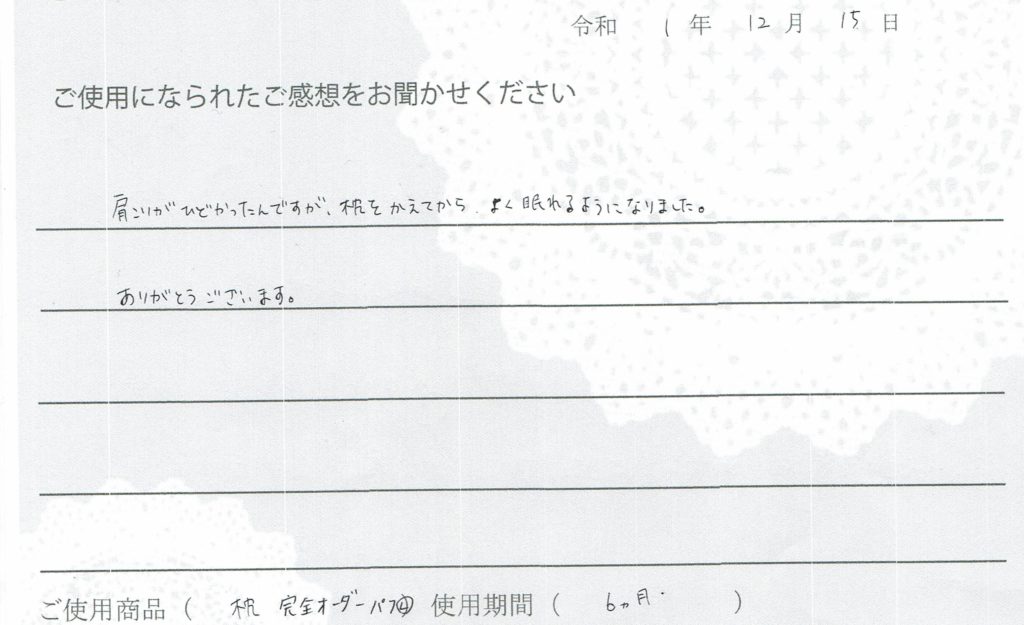 令和 1 年 12 月 15 日
ご使用になられたご感想をお聞かせください
肩こりがひどかったんですが、枕をかえてから、よく眠れるようになりました。
ありがとうございます。
ご使用商品 ( 枕 完全オーダー 使用期間 ( 6ヵ月 )